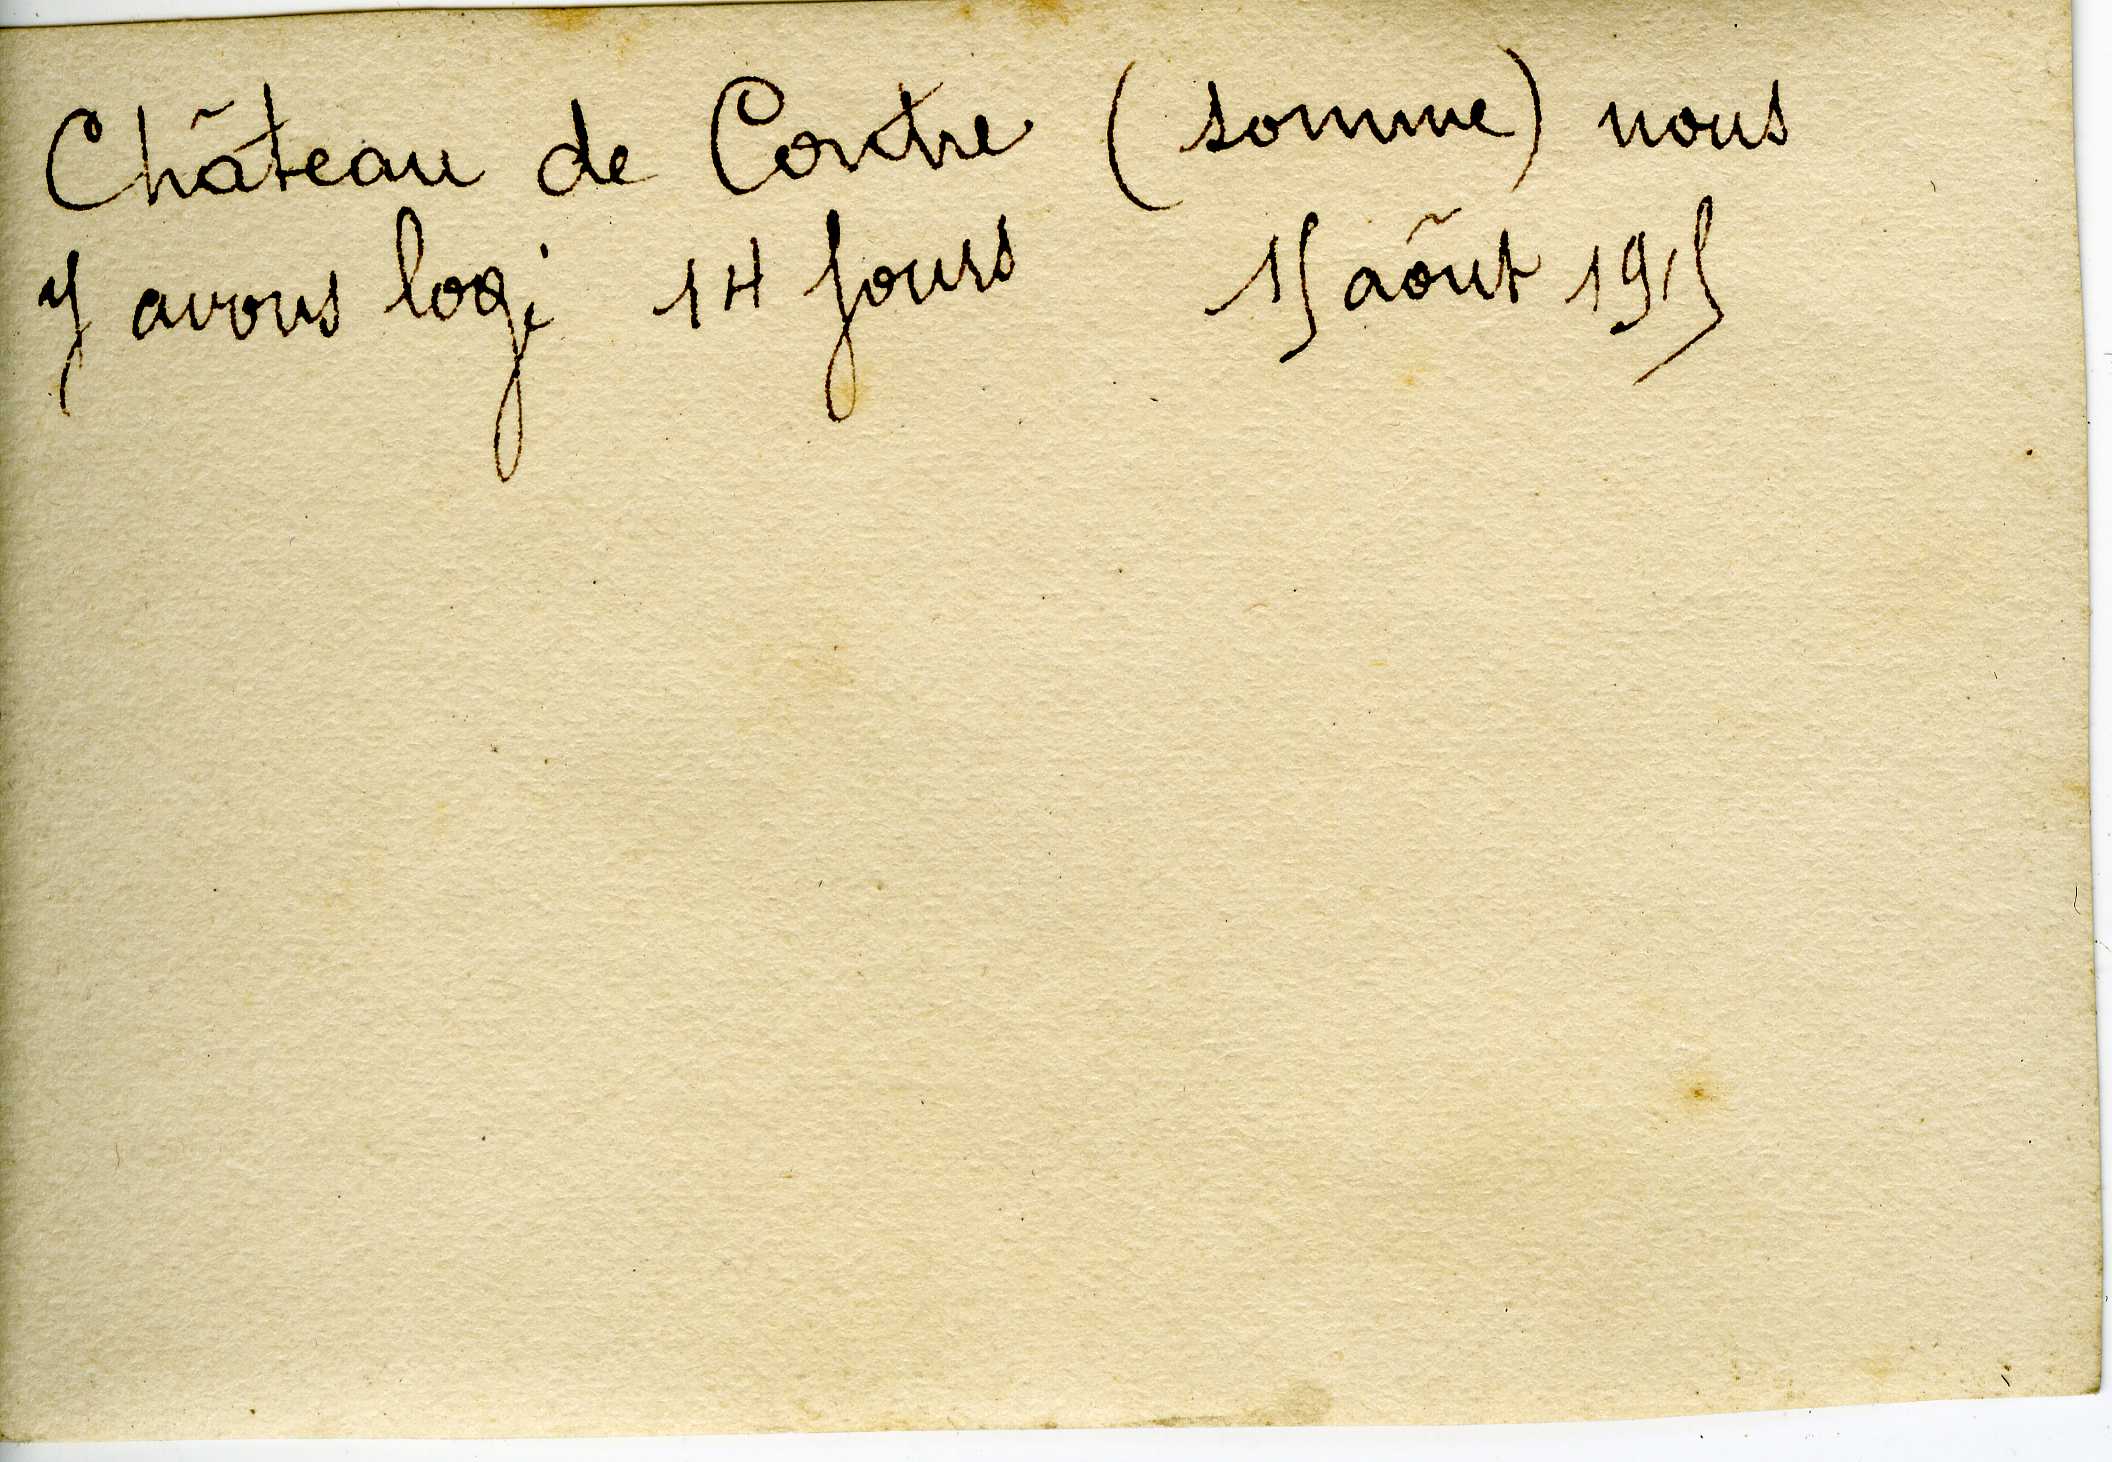 Château de Contre (somme) nous
y avons logé 14 jours 15 aôut 1915